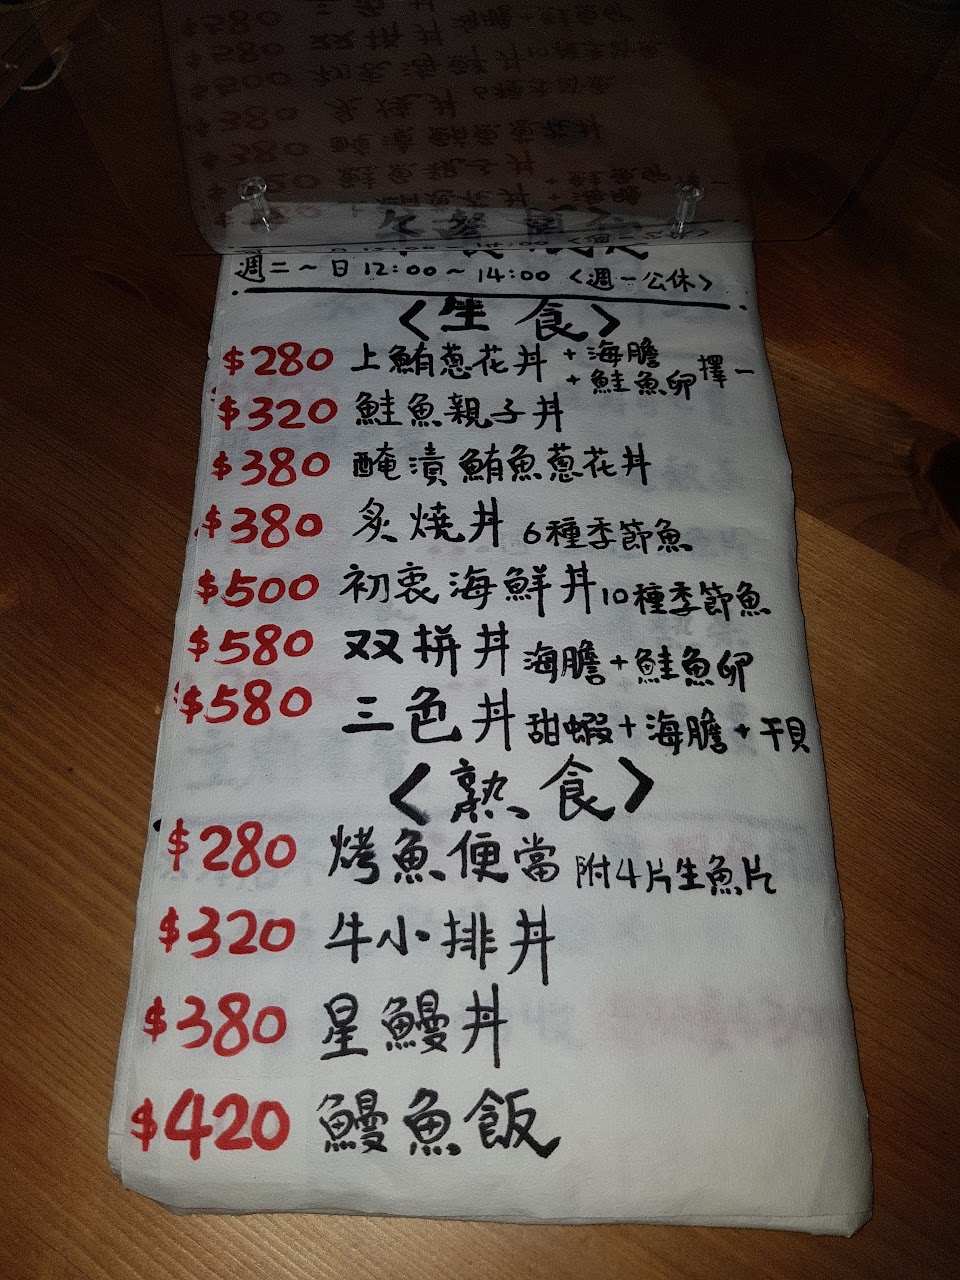 週二～日 12:00～14:00 〈週一公休〉
〈生食〉
$280 上鮪蔥花丼 +海膽 +鮭魚卵 擇一
$320 鮭魚親子丼
$380 醃漬鮪魚蔥花丼
$380 炙燒丼 6種季節魚
$500 初衷海鮮丼 10種季節魚
$580 双拼丼 海膽+鮭魚卵
$580 三色丼 甜蝦+海膽+干貝
〈熟食〉
$280 烤魚便當 附4片生魚片
$320 牛小排丼
$380 星鰻丼
$420 鰻魚飯